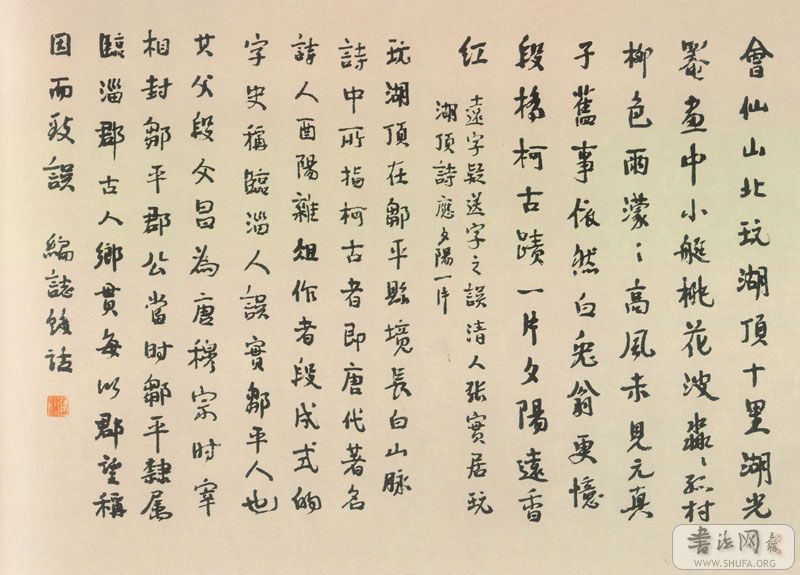 會仙山北玩湖頂十里湖光
罨畫中小艇桃花波淼淼孤村
柳色雨濛〻高風未見元真
子舊事依然白兔翁更憶
段橋柯古蹟一片夕陽遠香
紅
遠字疑送字之誤清人張實居玩
湖頂詩應夕陽一片
玩湖頂在鄒平縣境長白山脈
詩中所指柯古者即唐代著名
詩人酉陽雜俎作者段成式的
字史稱臨淄人誤實鄒平人也
其父段文昌為唐穆宗時宰
相封鄒平郡公當時鄒平隸属
臨淄郡古人鄉貫每以郡望稱
因而致誤 編誌餘話
書法网
WWW.SHUFA.ORG